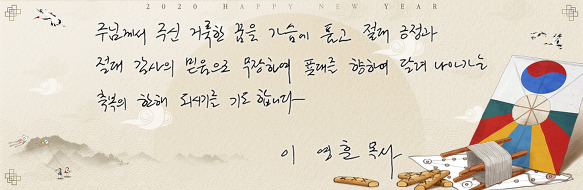 2020 HAPPY NEW YEAR
주님께서 주신 거룩한 꿈을 가슴에 품고 절대 긍정과
절대 감사의 믿음으로 무장하여 푯대를 향하여 달려 나아가는
축복의 한해 되시기를 기도합니다
이 영훈 목사